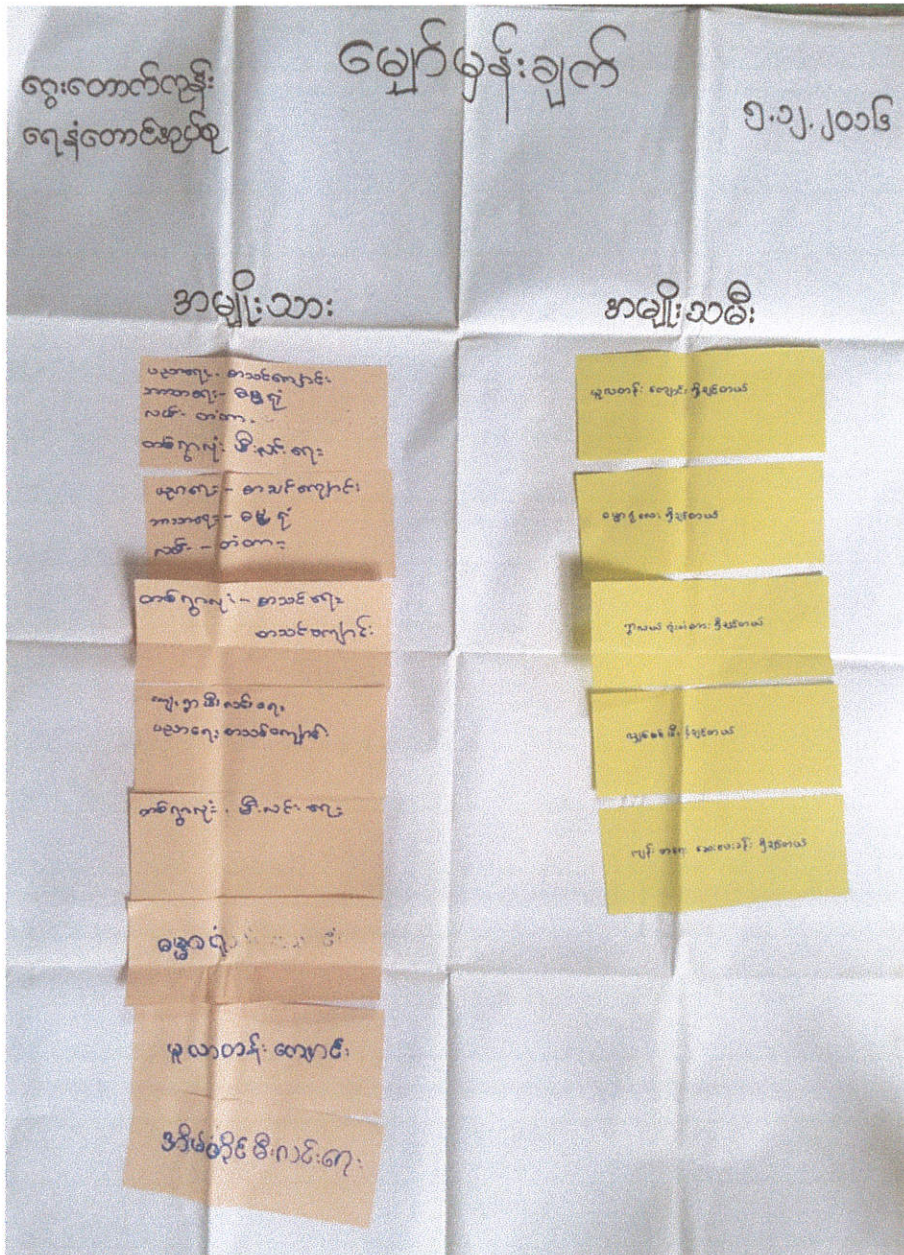 မျှော်မှန်းချက်
ငွေးတောက်ကုန်း
ရေနံတောင်အုပ်စု
၅.၁၂.၂၀၁၆
အမျိုးသား
ပညာရေး - စာသင်ကျောင်း
ဘာသာရေး - ဓမ္မာရုံ
လမ်း - တံတား
တစ်ရွာလုံး မီးလင်းရေး
ပညာရေး - စာသင်ကျောင်း
ဘာသာရေး - ဓမ္မာရုံ
လမ်း - တံတား
တစ်ရွာလုံး - စာသင်ရေး
စာသင်ကျောင်း
ကျေးရွာမီးလင်းရေး
ပညာရေး စာသင်ကျောင်း
တစ်ရွာလုံး . မီးလင်းရေး
ဓမ္မာရုံ
မူလတန်းကျောင်း
အိမ်တိုင်မီးလင်းရေး
အမျိုးသမီး
မူလတန်း ကျောင်း ရှိချင်တယ်
ဓမ္မာရုံလေး ရှိချင်တယ်
ရှိချင်တယ်
လျှပ်စစ်မီး ရှိချင်တယ်
ကျန်းမာရေး ဆေးပေးခန်း ရှိချင်တယ်